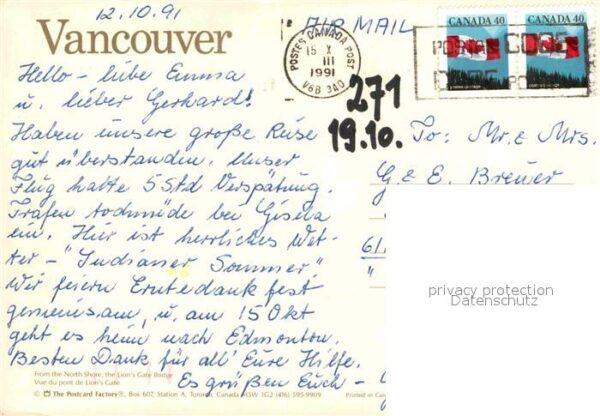 12.10.91
Vancouver
Hello - liebe Emma
u. lieber Gerhard!
Haben unsere große Reise
gut überstanden. Unser
Flug hatte 5 Std Verspätung.
Trafen todmüde bei Gisela
ein. Hier ist herrliches Wet-
ter - "Indianer Sommer"
Wir feiern Erntedankfest
gemeinsam, u. am 15 Okt
geht es heim nach Edmonton.
Besten Dank für all' Eure Hilfe.
Es grüßen Euch -
From the North Shore, the Lion's Gate Bridge
Vue du pont de Lion's Gate
© The Postcard Factory®, Box 607, Station A, Toronto, Canada M5W 1G2 (416) 595-9909
Printed in
AIR MAIL
POSTES CANADA POST
15 X
III
1991
V6B 3A0
CANADA 40
CANADA 40
POSTAL CODE
271
19.10.
To: Mr. & Mrs.
G. & E. Breuer
611
"
privacy protection
Datenschutz